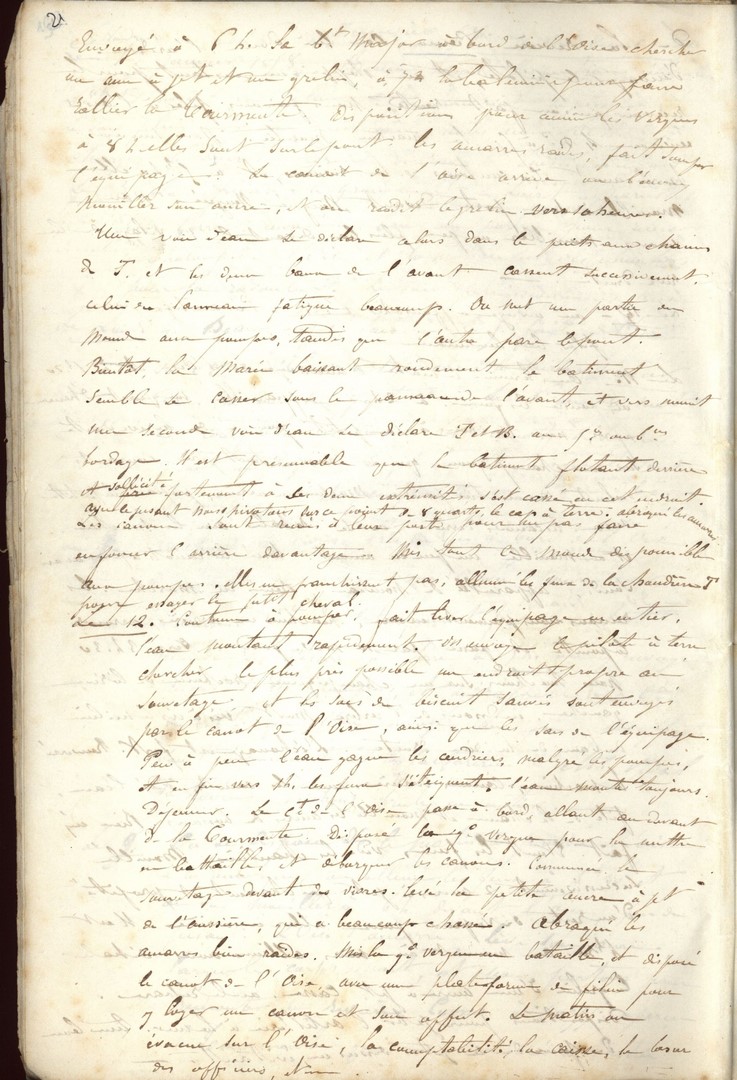 2
Envoyé à 6 h. la bt major à bord de l'Oise chercher
un à jt et un grelin, à 7h la pour faire
rallier la Tourmente. Dispositions pour amener les vergues
à 8 h elles sont sur le pont, les amarres raides, fait souper
l'équipage. Le canot de l'Oise arrive on l'envoy
mouiller son ancre, et on raidit le grelin vers 10 heures.
Une voie d'eau se déclare alors dans le puits aux chaines
de T. et les deux baux de l'avant cassent successivement,
celui du panneau fatigue beaucoup. On met une partie du
monde aux pompes, tandis que l'autre pare le pont.
Bientot, la marée baissant rondement le batiment
semble se casser sous le panneau de l'avant, et vers minuit
une seconde voie d'eau se déclare T et B. au
bordage. Il est présumable que le batiment flotant derrière
et sollicité fortement à ses deux extrémités s'est cassé en cet endroit.
nous pivotons sur ce point de 8 quarts, le cap à terre; abraqué les amarres
Les canons sont remis à leur poste pour ne pas faire
enfoncer l'arrière davantage. Mis tout le monde disponible
aux pompes. Elles ne franchirent pas, allumé les feux de la chaudière T
pour essayer le petit cheval.
Le 12. Continué à pomper, fait lever l'équipage en entier,
l'eau montant rapidement. On envoye le pilote à terre
chercher le plus près possible un endroit propre au
sauvetage et les sacs de biscuit sauvés sont envoyés
par le canot de l'Oise, ainsi que les sacs de l'équipage.
Peu à peu l'eau gagne les cendriers, malgré les pompes,
et enfin vers h. les feux s'éteignent. l'eau monte toujours.
Déjeuner. Le Ct de l'Oise passe à bord, allant au devant
de la Tourmente. Disposé la gde vergue pour la mettre
en bataille, et débarquer les canons. Commencé le
sauvetage devant des vivres. Levé la petite ancre à jt
de l'aussière, qui a beaucoup chassé. Abraqué les
amarres bien raides. Mis la gde vergue en bataille, et disposé
le canot de l'Oise avec une plateforme de filin pour
y loger un canon et son affut. Le matin on
évacue sur l'Oise, la comptabilité, la caisse, le
des officiers,